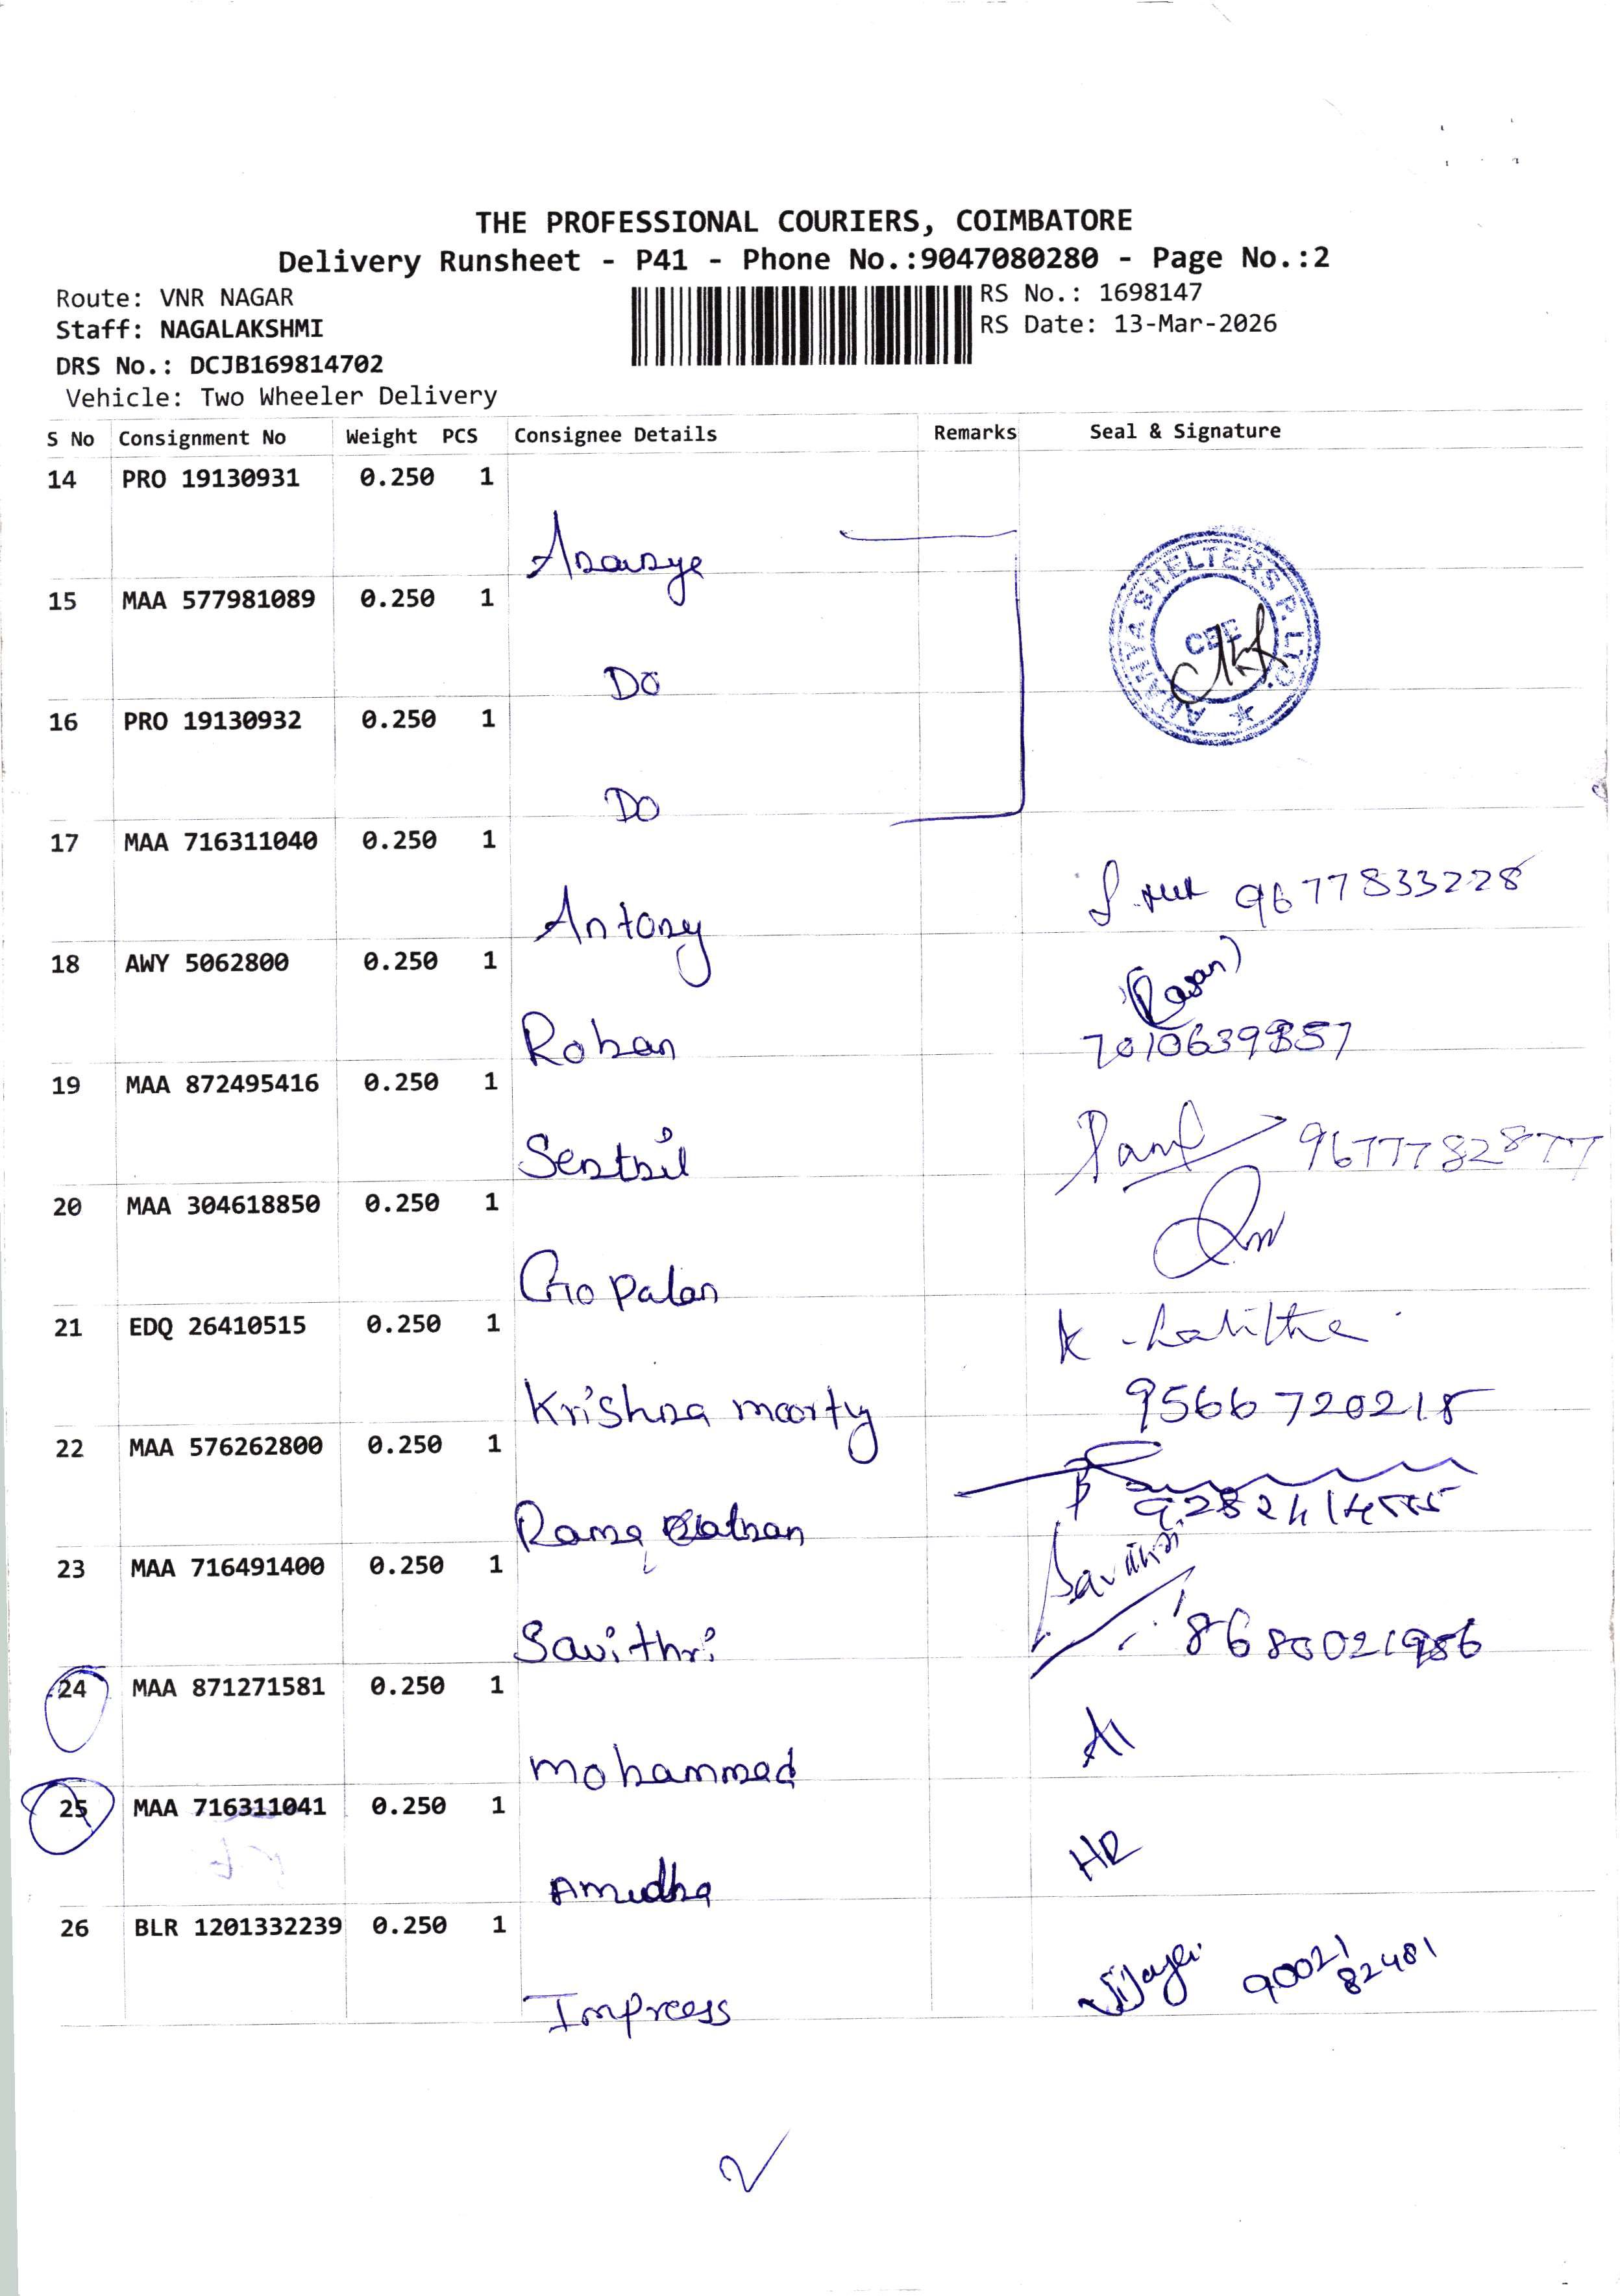 THE PROFESSIONAL COURIERS, COIMBATORE
Delivery Runsheet - P41 - Phone No.:9047080280 - Page No.:2
Route: VNR NAGAR
Staff: NAGALAKSHMI
DRS No.: DCJB169814702
Vehicle: Two Wheeler Delivery
RS No.: 1698147
RS Date: 13-Mar-2026
S No Consignment No Weight PCS Consignee Details Remarks Seal & Signature
14 PRO 19130931 0.250 1
ANANYA SHELTERS P. LTD. CBE
15 MAA 577981089 0.250 1
Do
16 PRO 19130932 0.250 1
Do
17 MAA 716311040 0.250 1
Antony 9677833228
18 AWY 5062800 0.250 1
Rohan
19 MAA 872495416 0.250 1
Senthil 9677782877
20 MAA 304618850 0.250 1
Gopalan
21 EDQ 26410515 0.250 1
K. Lalitha
Krishna moorty 9566720218
22 MAA 576262800 0.250 1
Rama
23 MAA 716491400 0.250 1
Savithri
Savithri
24 MAA 871271581 0.250 1
Mohammed
25 MAA 716311041 0.250 1
Amudha HR
26 BLR 1201332239 0.250 1
Impress 90021 82481